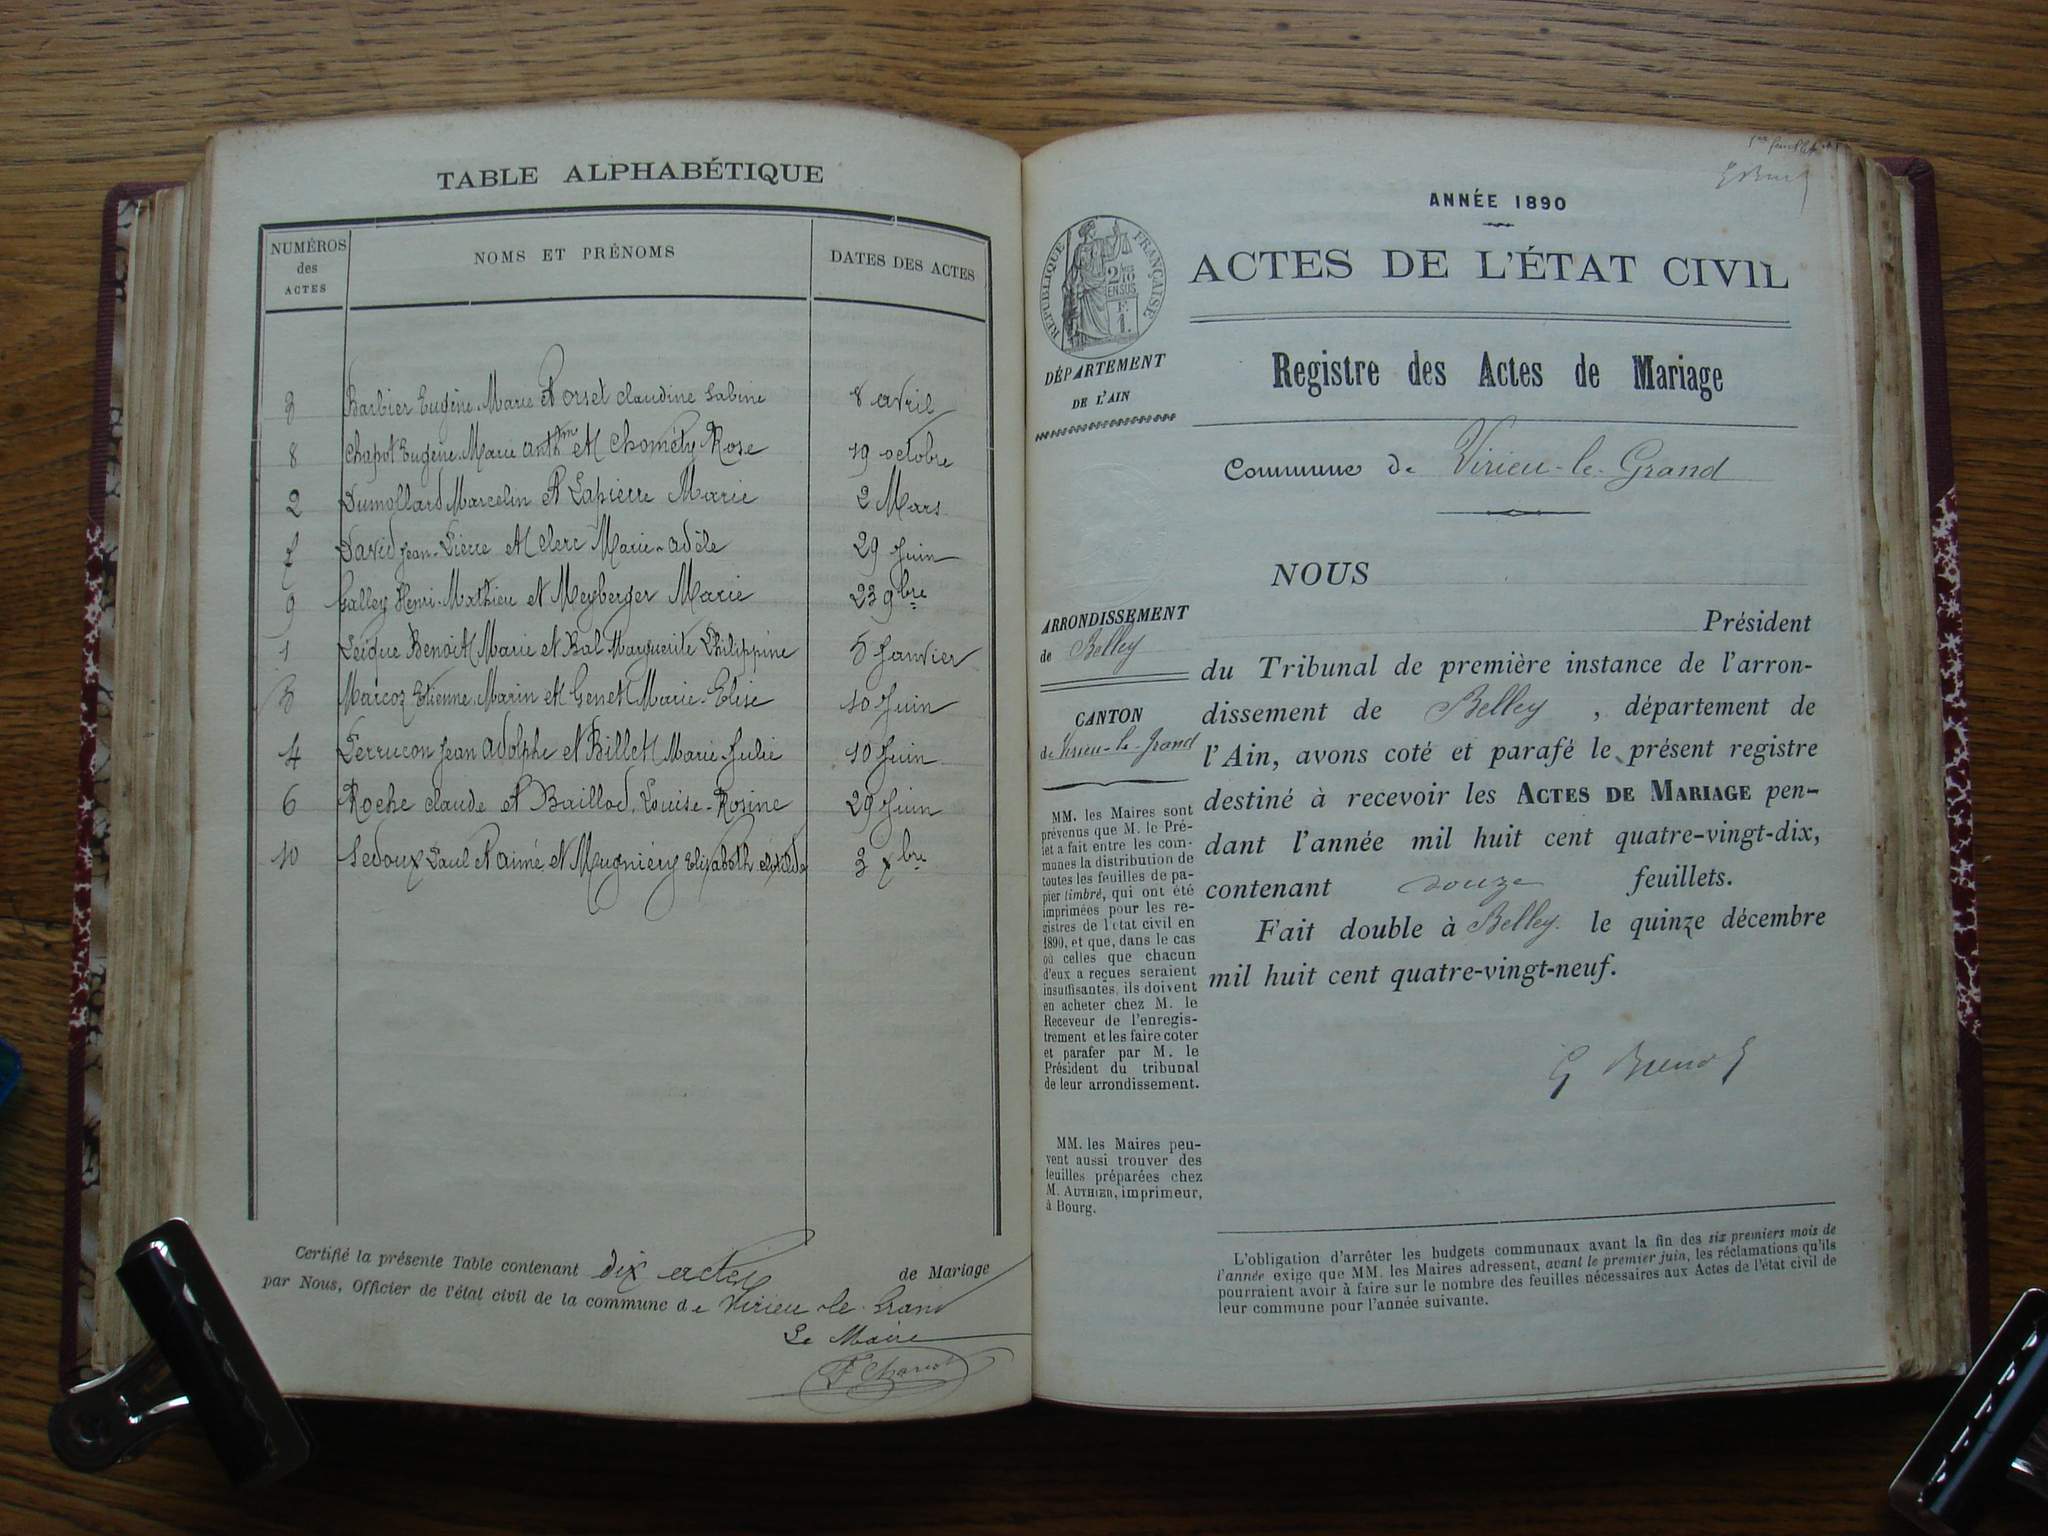 TABLE ALPHABÉTIQUE
NUMÉROS des ACTES
NOMS ET PRÉNOMS
DATES DES ACTES
Barbier Eugène-Marie et Porset Claudine Sabine 8 avril
8 Chapot Eugène-Marie Anth^me et Chomély Rose 19 octobre
2 Dumollard Marcelin et Lapierre Marie 2 Mars
David Jean-Pierre et Clerc Marie-Adèle 29 Juin
9 Galley Henri-Mathieu et Meyberger Marie 23 9bre
1 Benoit Marie et Bal Marguerite Philippine 5 Janvier
Marcoz Etienne-Marin et Genet Marie-Elise 10 Juin
4 Perrucon Jean Adolphe et Billet Marie-Julie 10 Juin
6 Roche Claude et Baillod Louise-Rosine 29 Juin
10 Sedoux Paul et Mugniéry Elizabeth Clotilde 3 xbre
Certifié la présente Table contenant dix actes de Mariage
par Nous, Officier de l'état civil de la commune de Virieu-le-Grand
Le Maire
ANNÉE 1890
ACTES DE L'ÉTAT CIVIL
RÉPUBLIQUE FRANÇAISE
2/10 EN SUS
F. 1.
DÉPARTEMENT
DE L'AIN
Registre des Actes de Mariage
Commune de Virieu-le-Grand
NOUS
Président
du Tribunal de première instance de l'arron-
dissement de Belley, département de
l'Ain, avons coté et parafé le présent registre
destiné à recevoir les ACTES DE MARIAGE pen-
dant l'année mil huit cent quatre-vingt-dix,
contenant douze feuillets.
Fait double à Belley. le quinze décembre
mil huit cent quatre-vingt-neuf.
ARRONDISSEMENT
de Belley
CANTON
de Virieu-le-Grand
MM. les Maires sont
prévenus que M. le Pré-
fet a fait entre les com-
munes la distribution de
toutes les feuilles de pa-
pier timbré, qui ont été
imprimées pour les re-
gistres de l'état civil en
1890, et que, dans le cas
où celles que chacun
d'eux a reçues seraient
insuffisantes, ils doivent
en acheter chez M. le
Receveur de l'enregis-
trement et les faire coter
et parafer par M. le
Président du tribunal
de leur arrondissement.
MM. les Maires peu-
vent aussi trouver des
feuilles préparées chez
M. AUTHIER, imprimeur,
à Bourg.
L'obligation d'arrêter les budgets communaux avant la fin des six premiers mois de
l'année exige que MM. les Maires adressent, avant le premier juin, les réclamations qu'ils
pourraient avoir à faire sur le nombre des feuilles nécessaires aux Actes de l'état civil de
leur commune pour l'année suivante.